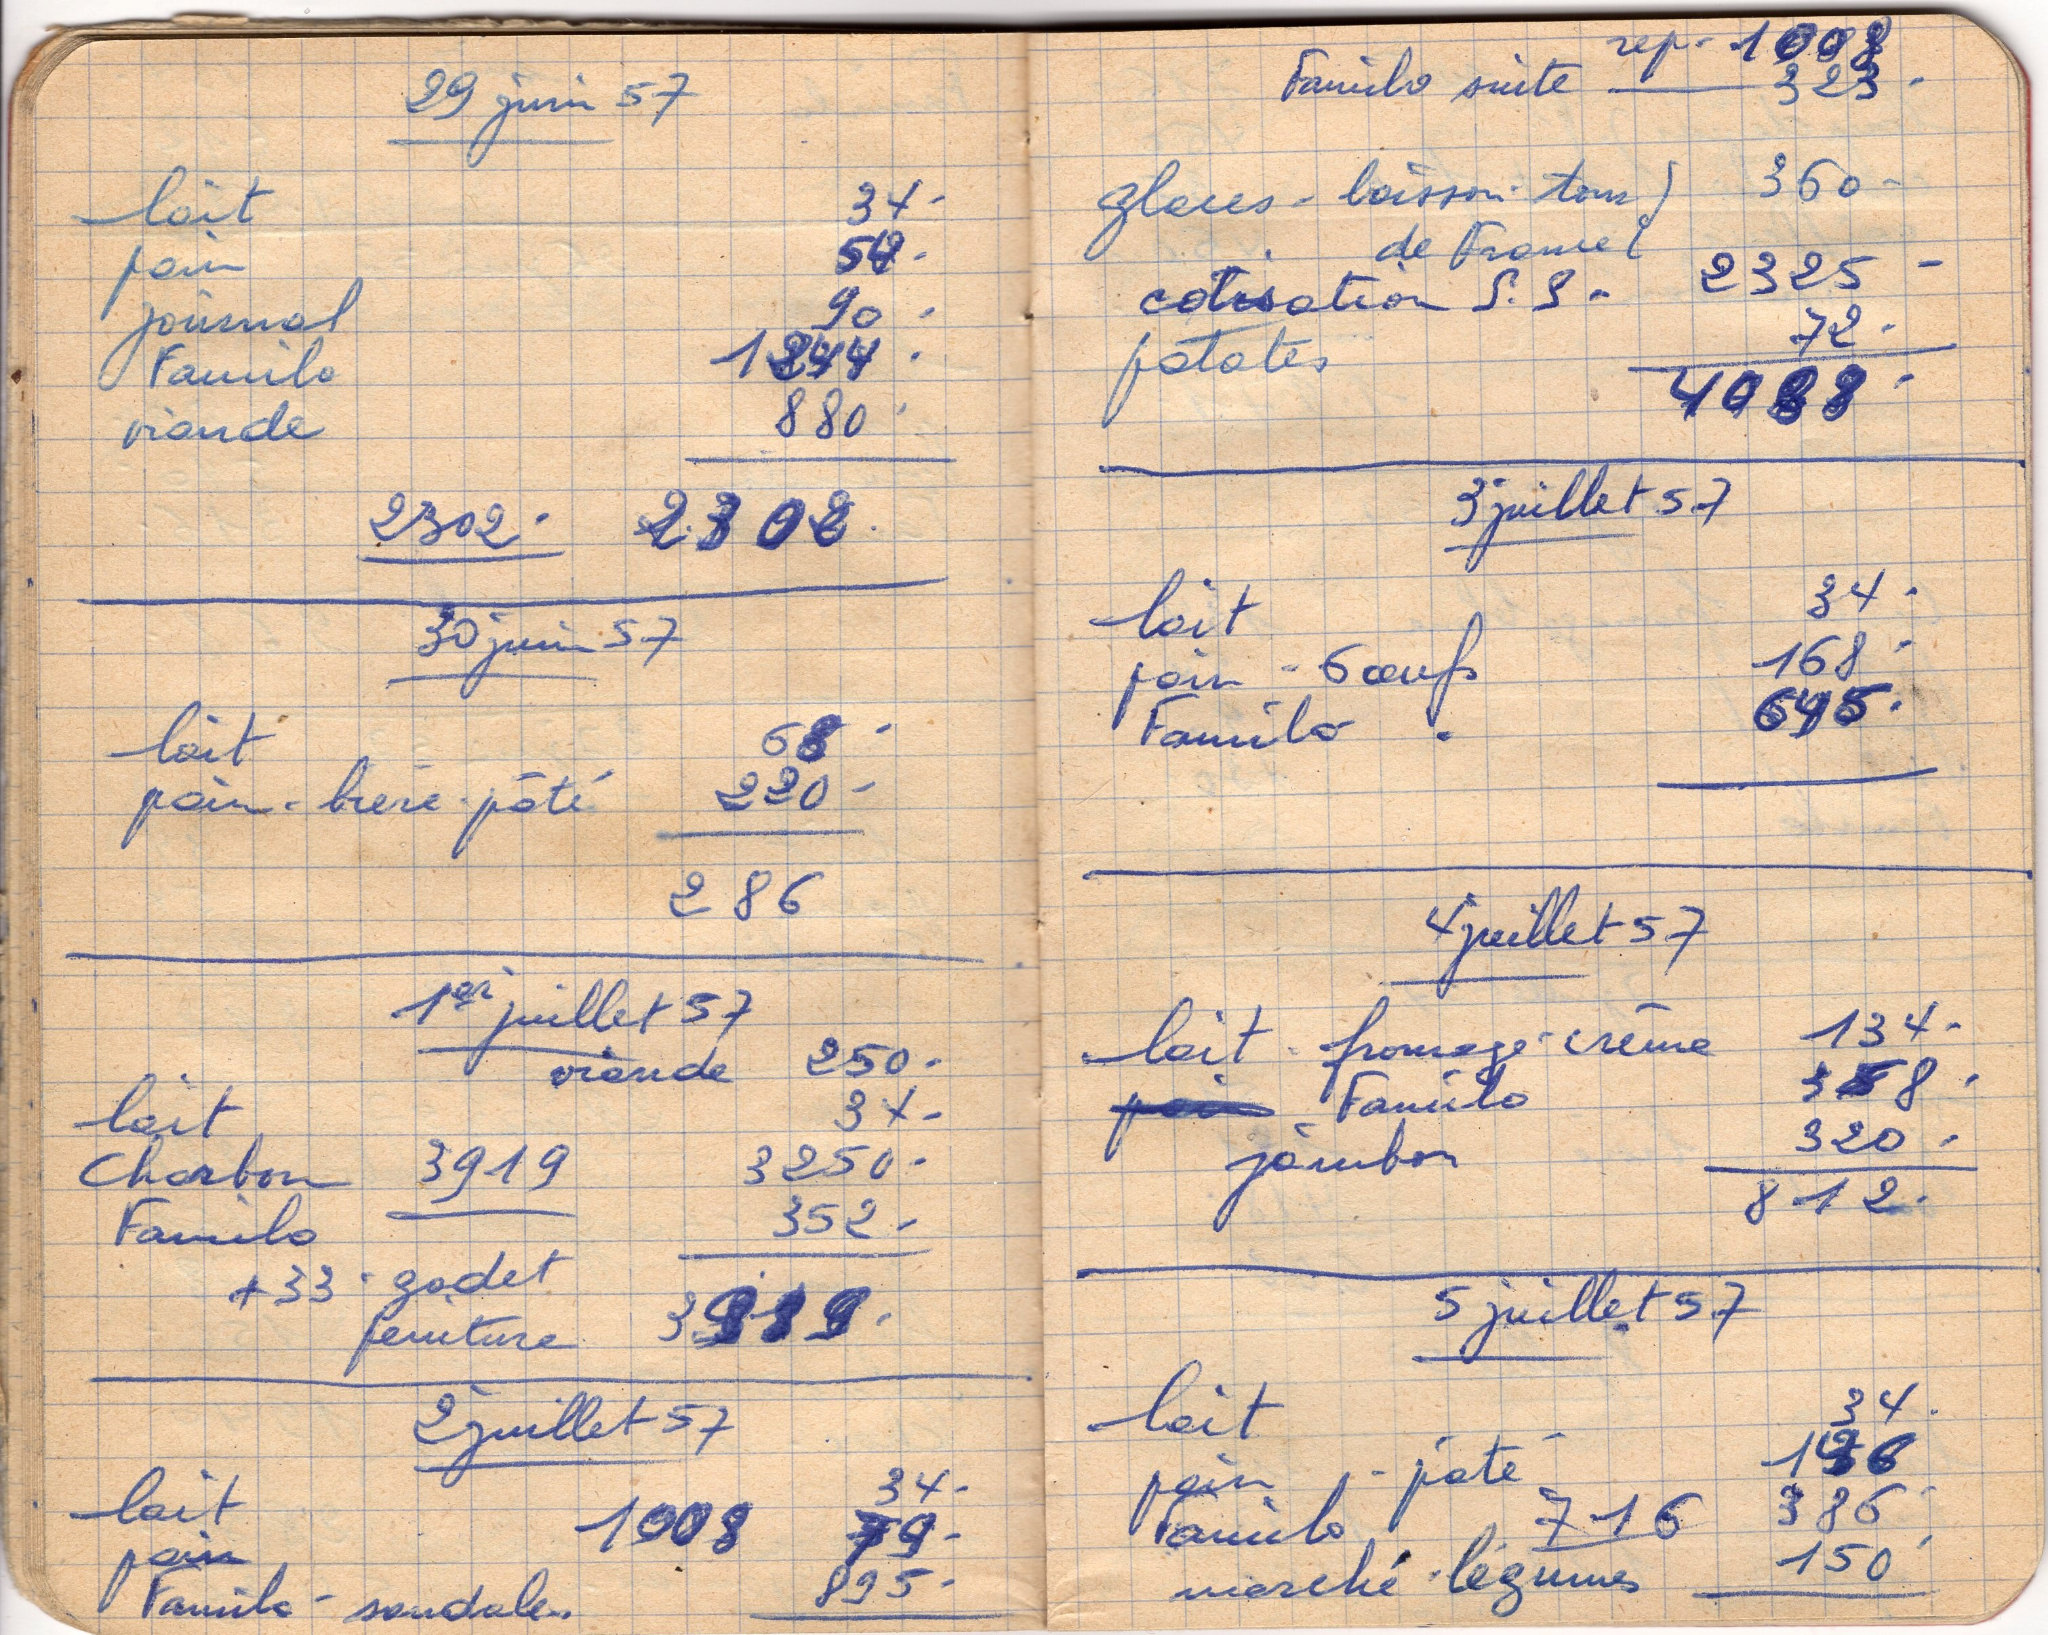 29 juin 57
lait 34-
pain 54-
journal 90-
Familo 1244-
viande 880-
2302- 2302-
30 juin 57
lait 68-
pain-bière-pâté 220-
286
1er juillet 57
viande 250-
lait 34-
Charbon 3919 3250-
Familo 352-
+33-godet 
peinture 3919-
2 juillet 57
lait 34-
pain 1008 79-
Familo-sandales 895-
rep- 1008
Familo suite 323-
glaces-boisson-tour 360-
de France
cotisation S.S- 2325-
patates 72-
4088-
3 juillet 57
lait 34-
pain-6 œufs 168-
Familo 645-
4 juillet 57
lait-fromage-crème 134-
Familo 358-
jambon 320-
812-
5 juillet 57
lait 34-
pain-pâté
Familo 716 386-
marché-légumes 150-